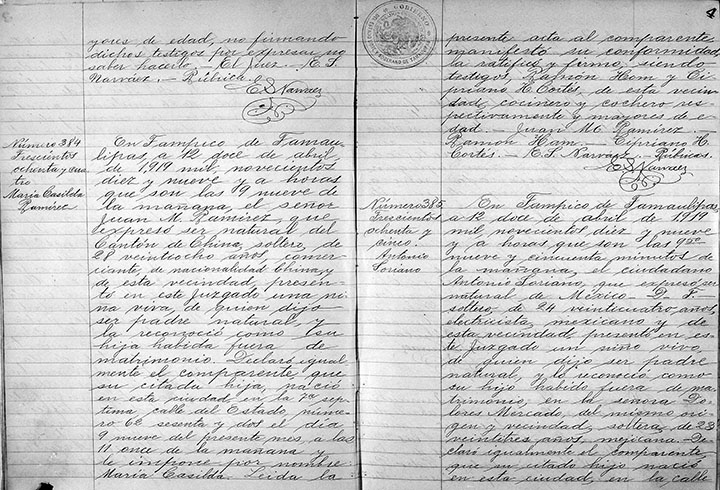 yores de edad, no firmando
dichos testigos por expresar no
saber hacerlo. El Juez. E. S.
Narváez. - Rúbrica.
E S Narváez
Número 384
Trescientos
ochenta y cua
tro
María Casilda
Ramírez
En Tampico de Tamau-
lipas, a 12 doce de abril
de 1919 mil, novecientos
diez y nueve y a horas
que son las 9 nueve de
la mañana, el señor
Juan M. Ramírez, que
expresó ser natural del
Cantón de China, soltero, de
28 veintiocho años, comer-
ciante, de nacionalidad China, y
de esta vecindad, presen-
tó en este Juzgado una ni-
ña viva de quien dijo
ser padre natural, y
la reconoció como su
hija habida fuera de
matrimonio. Declaró igual-
mente el comparente que
su citada hija, nació
en esta ciudad en la 7a sép-
tima calle del Estado, núme-
ro 62 sesenta y dos el día
9 nueve del presente mes, a las
11 once de la mañana y
le impone por nombre
María Casilda. Leída la
4
presente acta al comparente
manifestó su conformidad,
la ratificó y firmó, siendo
testigos, Ramón Ham y Ci-
priano H. Cortés, de esta vecin-
dad, cocinero y cochero res-
pectivamente y mayores de e-
dad. - Juan M. Ramírez. -
Ramón Ham. - Cipriano H.
Cortés. - E. S. Narváez - Rúbricas.
E S Narváez
Número 385
Trescientos
ochenta y
cinco.
Antonio
Soriano
En Tampico de Tamaulipas,
a 12 doce de abril de 1919
mil, novecientos diez y nueve
y a horas que son las 9 50
nueve y cincuenta minutos de
la mañana, el ciudadano
Antonio Soriano, que expresó ser
natural de México - D. F.
soltero, de 24 veinticuatro años,
electricista, mexicano y de
esta vecindad presentó en es-
te Juzgado un niño vivo,
de quien dijo ser padre
natural, y lo reconoció como
su hijo habido fuera de ma-
trimonio, en la señora Do-
lores Mercado, del mismo ori-
gen y vecindad, soltera, de 23
veintitres años, mejicana. De-
claró igualmente el comparente
que su citado hijo nació
en esta ciudad, en la calle